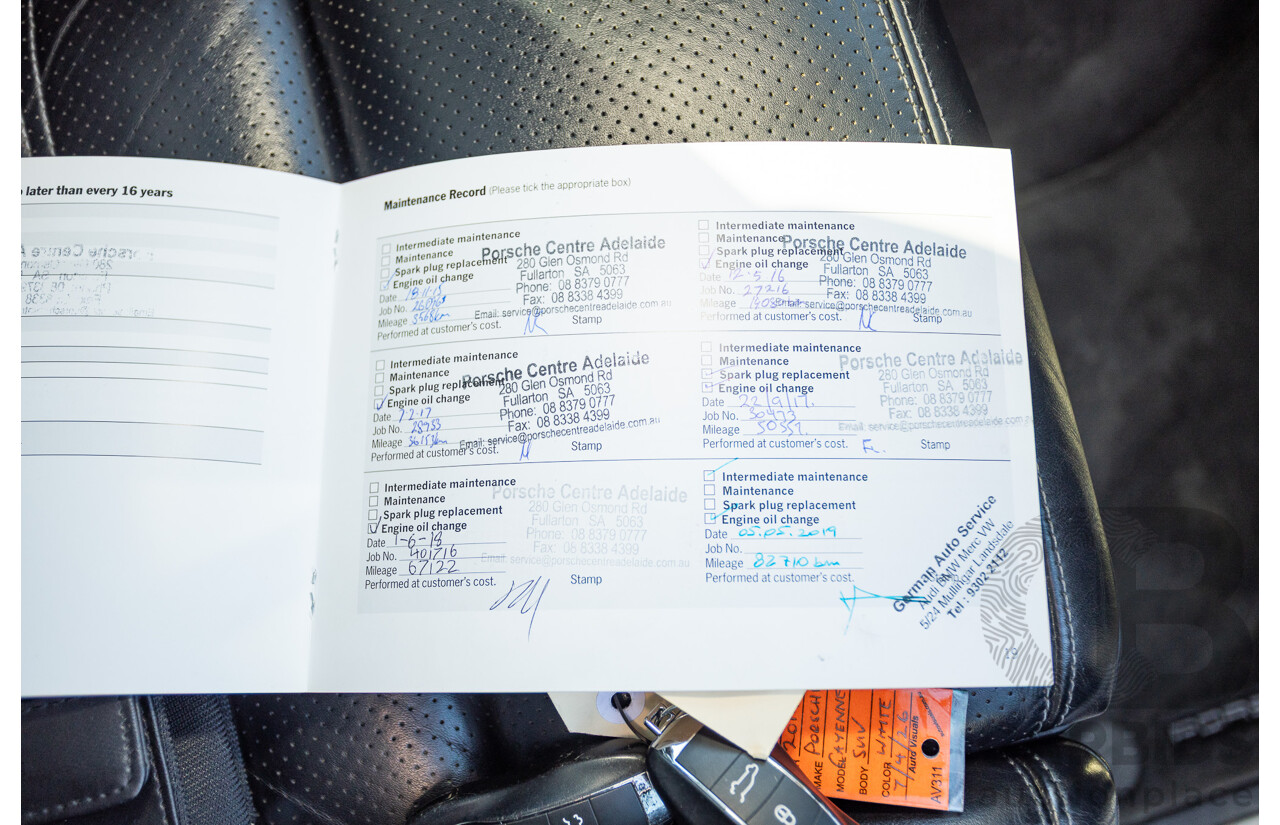 later than every 16 years
Maintenance Record (Please tick the appropriate box)
Intermediate maintenance
Maintenance
Spark plug replacement
Engine oil change
Date 18.11.15
Job No.
Mileage
Performed at customer's cost.
Stamp
Porsche Centre Adelaide
280 Glen Osmond Rd
Fullarton SA 5063
Phone: 08 8379 0777
Fax: 08 8338 4399
Email: service@porschecentreadelaide.com.au
Intermediate maintenance
Maintenance
Spark plug replacement
Engine oil change
Date 12.5.16
Job No. 27216
Mileage
Performed at customer's cost.
Stamp
Porsche Centre Adelaide
280 Glen Osmond Rd
Fullarton SA 5063
Phone: 08 8379 0777
Fax: 08 8338 4399
Email: service@porschecentreadelaide.com.au
Intermediate maintenance
Maintenance
Spark plug replacement
Engine oil change
Date 7.2.17
Job No. 28953
Mileage 36153km
Performed at customer's cost.
Stamp
Porsche Centre Adelaide
280 Glen Osmond Rd
Fullarton SA 5063
Phone: 08 8379 0777
Fax: 08 8338 4399
Email: service@porschecentreadelaide.com.au
Intermediate maintenance
Maintenance
Spark plug replacement
Engine oil change
Date 22/9/17.
Job No. 30473
Mileage 50357.
Performed at customer's cost.
Stamp
Porsche Centre Adelaide
280 Glen Osmond Rd
Fullarton SA 5063
Phone: 08 8379 0777
Fax: 08 8338 4399
Email: service@porschecentreadelaide.com.au
Intermediate maintenance
Maintenance
Spark plug replacement
Engine oil change
Date 1-6-18
Job No. 401716
Mileage 67122
Performed at customer's cost.
Stamp
Porsche Centre Adelaide
280 Glen Osmond Rd
Fullarton SA 5063
Phone: 08 8379 0777
Fax: 08 8338 4399
Email: service@porschecentreadelaide.com.au
Intermediate maintenance
Maintenance
Spark plug replacement
Engine oil change
Date 05.05.2019
Job No.
Mileage 82710 km
Performed at customer's cost.
German Auto Service
Audi BMW Merc VW
5/24 Mullingar Landsdale
Tel : 9302 2112
19
MAKE PORSCH
MODEL CAYENNE
BODY SUV
COLOR WHITE
7/4/26
Auto Visuals
AV311